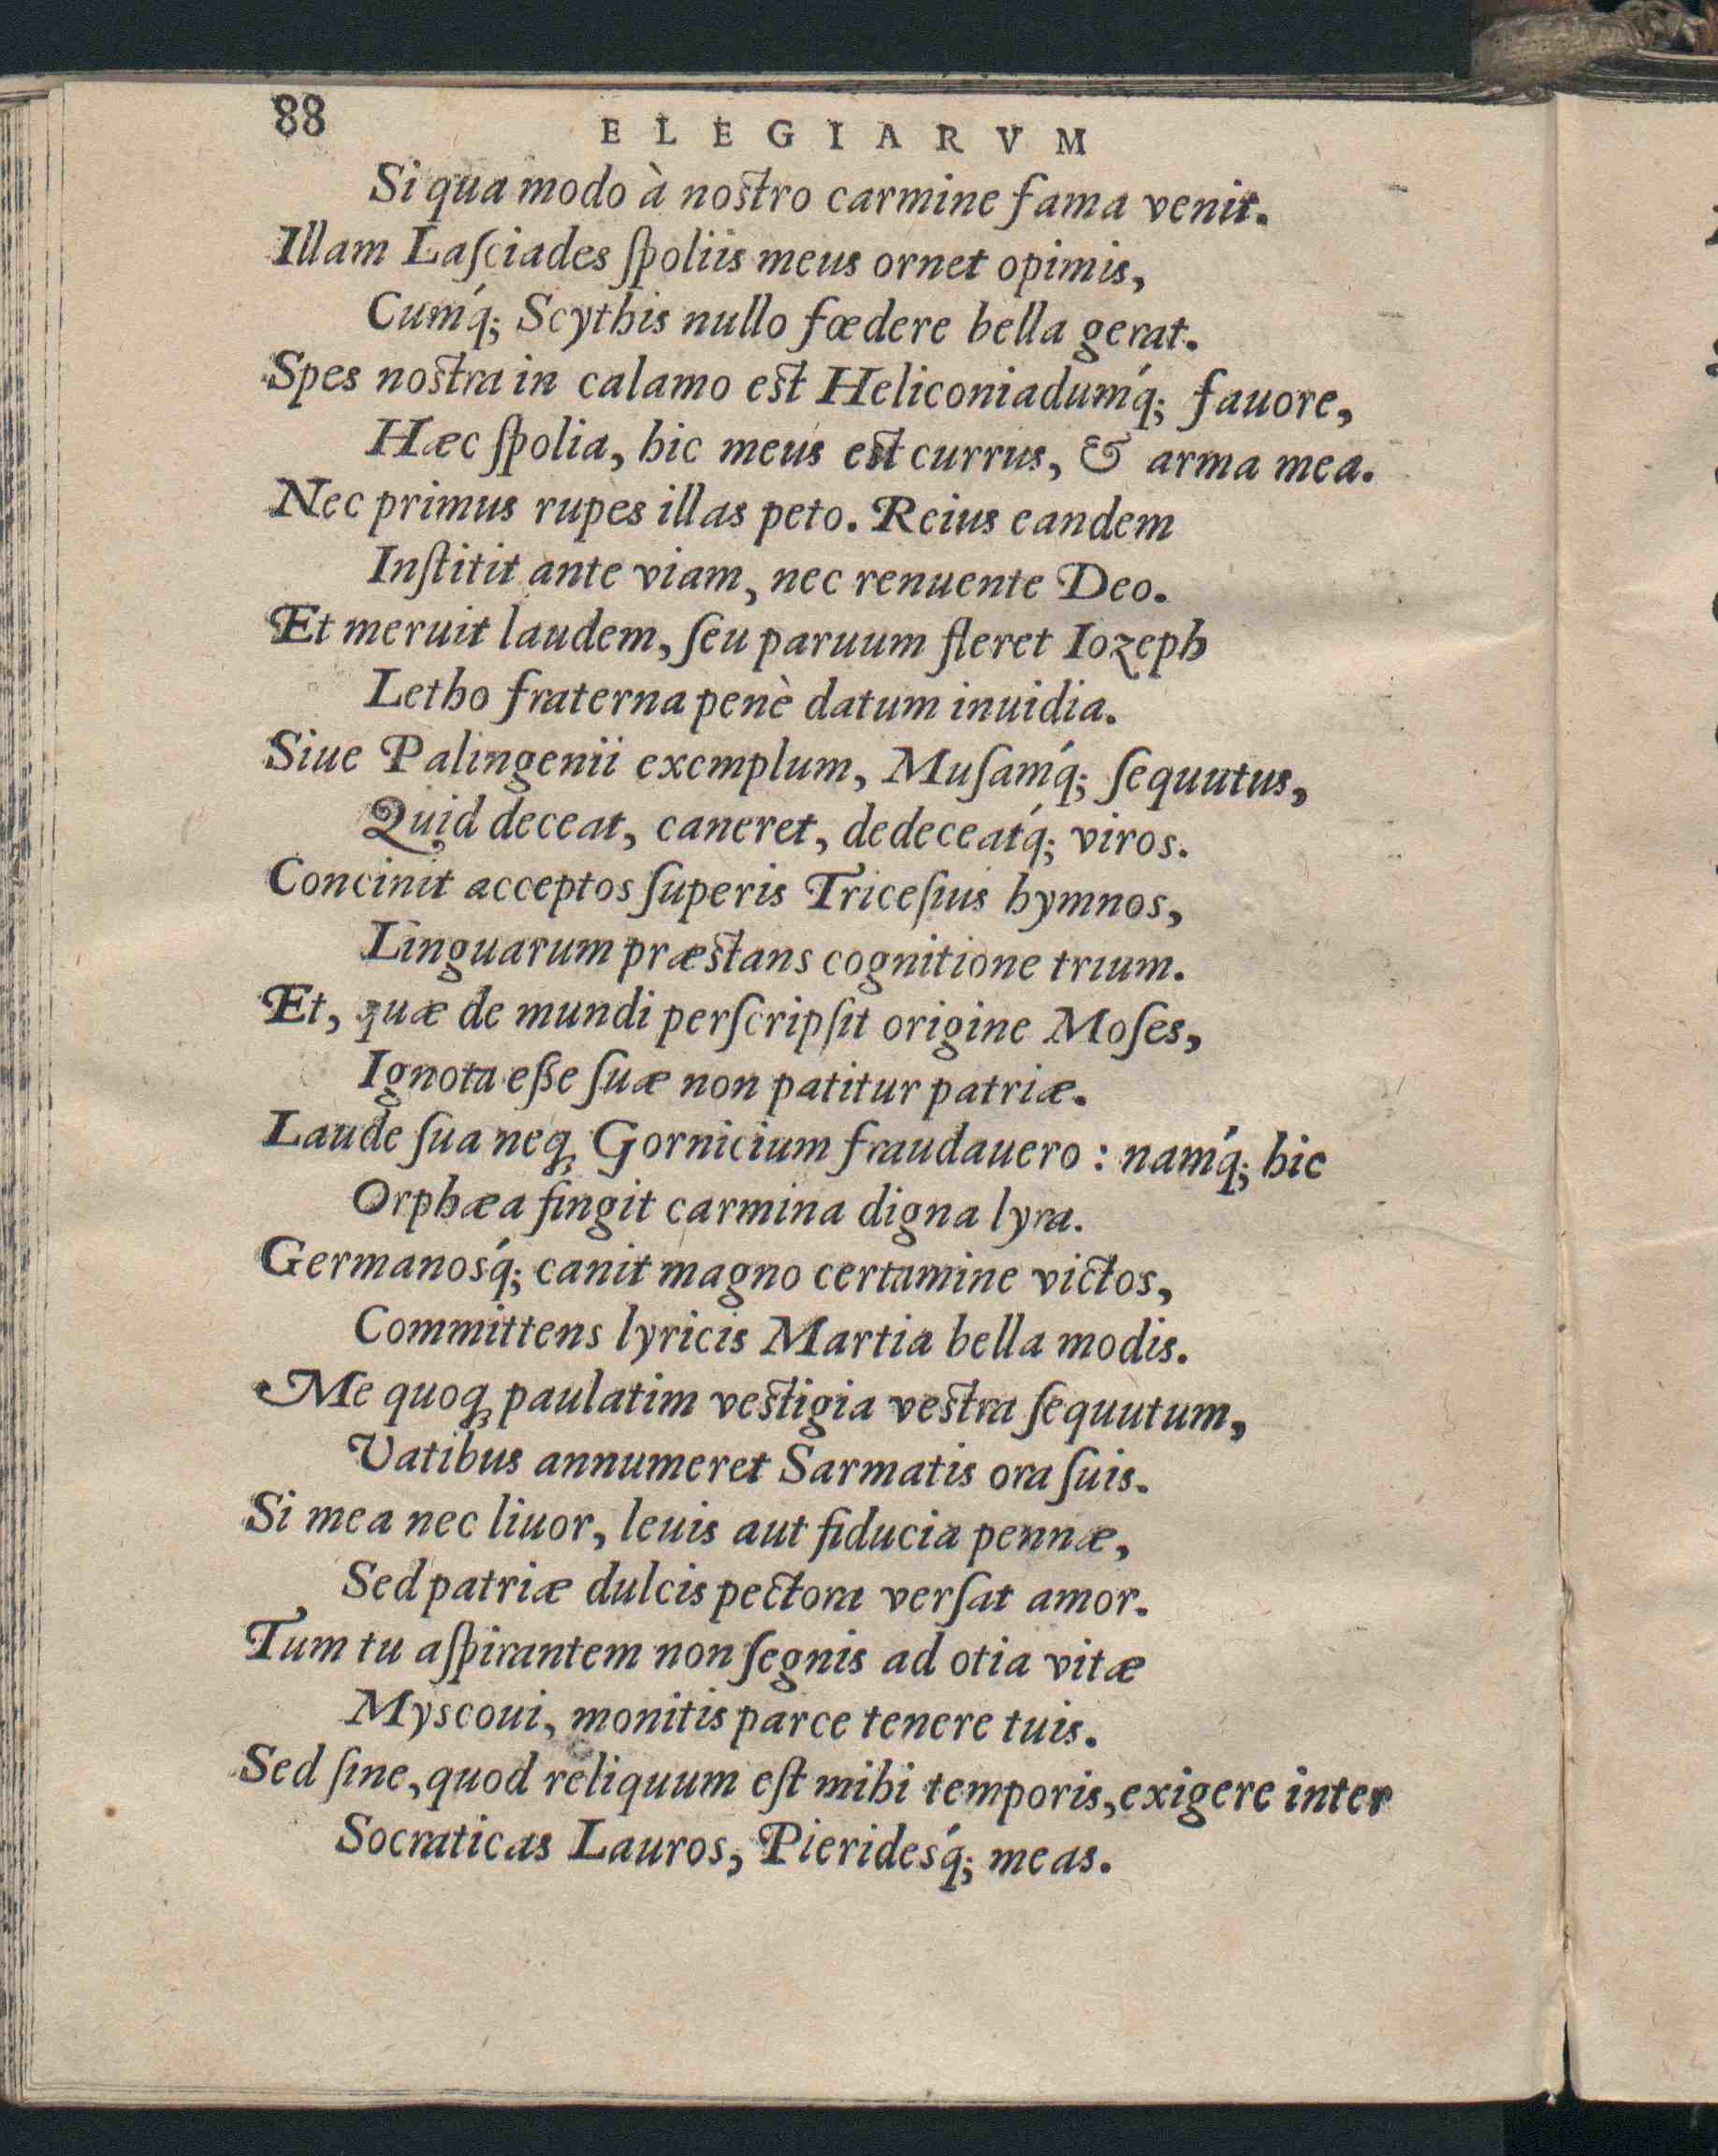 88
ELEGIARVM
Si qua modo à nostro carmine fama venit.
Illam Laſciades ſpoliis meus ornet opimis,
Cumq́; Scythis nullo fœdere bella gerat.
Spes nostra in calamo est Heliconiadumq́; fauore,
Hæc ſpolia, hic meus est currus, & arma mea.
Nec primus rupes illas peto. Reius eandem
Inſtitit ante viam, nec renuente Deo.
Et meruit laudem, ſeu paruum fleret Iozeph
Letho fraterna penè datum inuidia.
Siue Palingenii exemplum, Muſamq́; ſequutus,
Quid deceat, caneret, dedeceatq́; viros.
Concinit acceptos ſuperis Triceſius hymnos,
Linguarum præstans cognitione trium.
Et, quæ de mundi perſcripſit origine Moſes,
Ignota eſſe ſuæ non patitur patriæ.
Laude ſua neq; Gornicium fraudauero: namq́; hic
Orphæa fingit carmina digna lyra.
Germanosq́; canit magno certamine victos,
Committens lyricis Martia bella modis.
Me quoq; paulatim vestigia vestra ſequutum,
Vatibus annumeret Sarmatis ora ſuis.
Si mea nec liuor, leuis aut fiducia pennæ,
Sed patriæ dulcis pectora verſat amor.
Tum tu aſpirantem non ſegnis ad otia vitæ
Myscoui, monitis parce tenere tuis.
Sed ſine, quod reliquum eſt mihi temporis, exigere inter
Socraticas Lauros, Pieridesq́; meas.